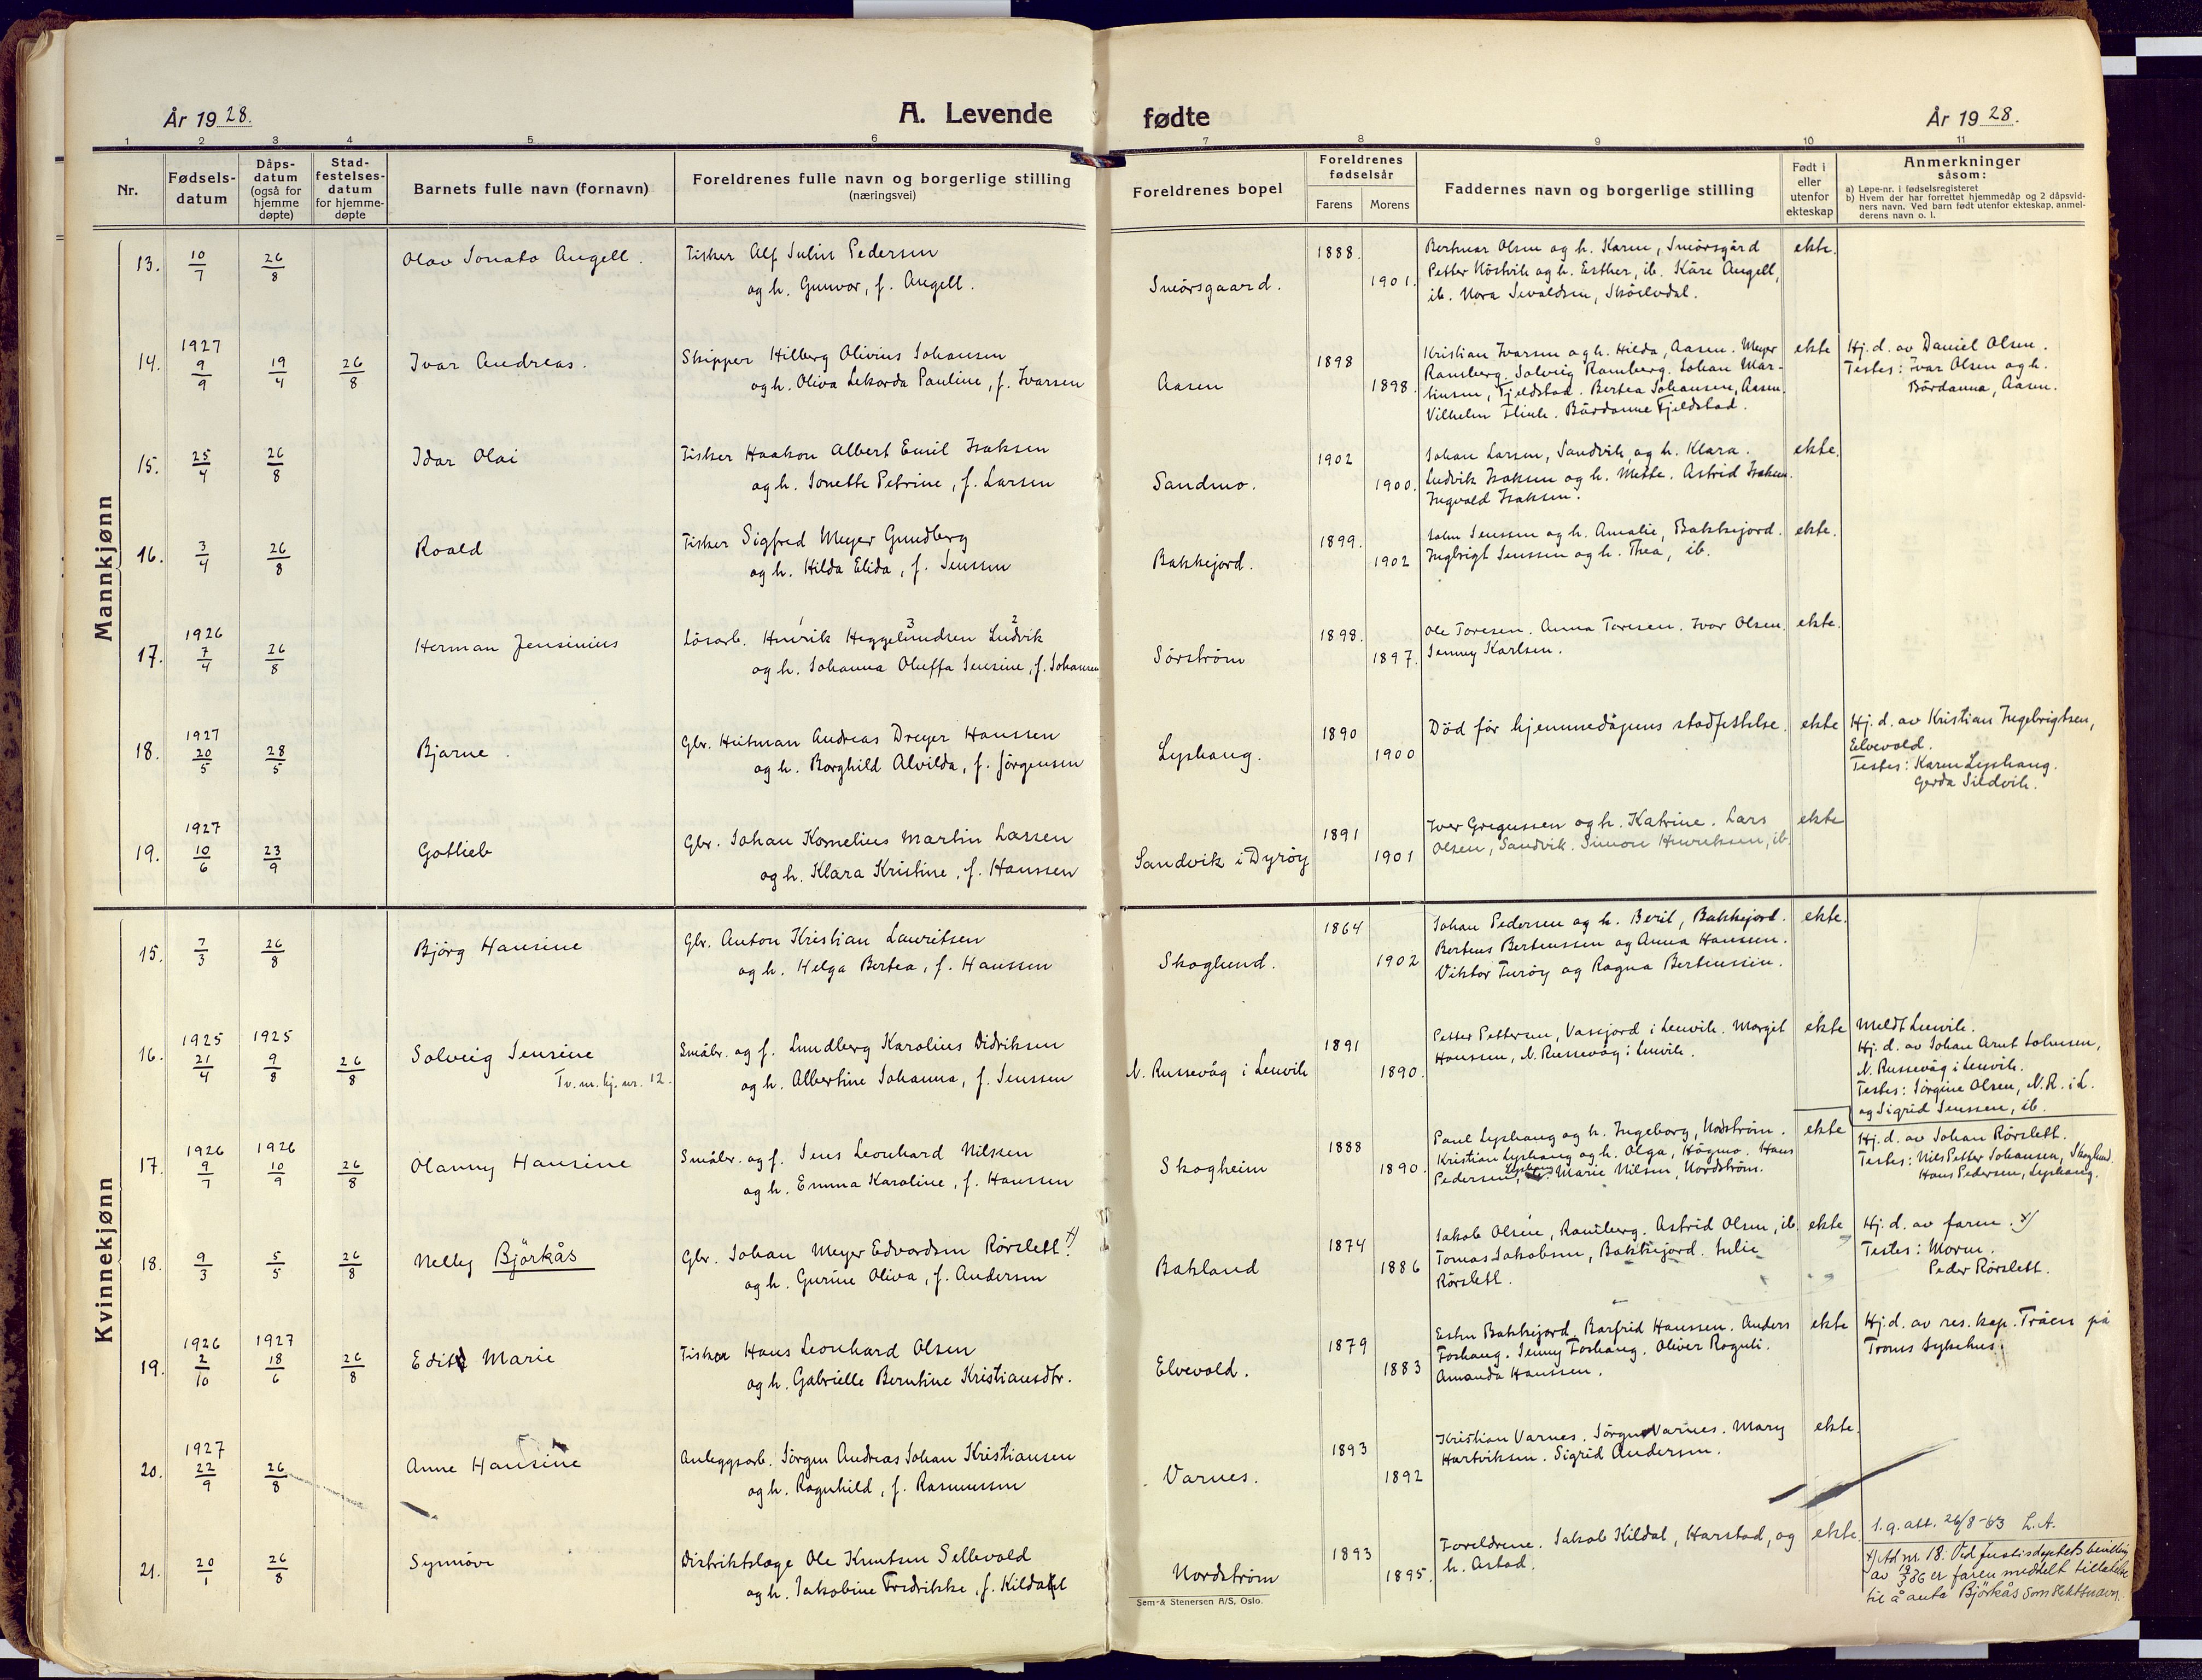 År 1928.
A. Levende
fødte
År 1928.
1 2 3 4 5 6 7 8 9 10 11
Nr.
Fødsels-
datum
Dåps-
datum
(også for
hjemme
døpte)
Stad-
festelses-
datum
for hjemme-
døpte
Barnets fulle navn (fornavn)
Foreldrenes fulle navn og borgerlige stilling
(næringsvei)
Foreldrenes bopel
Foreldrenes
fødselsår
Farens Morens
Faddernes navn og borgerlige stilling
Født i
eller
utenfor
ekteskap
Anmerkninger
såsom:
a) Løpe-nr. i fødselsregisteret
b) Hvem der har forrettet hjemmedåp og 2 dåpsvid-
ners navn. Ved barn født utenfor ekteskap, anmel-
derens navn o. l.
Mannkjønn
13. 10/7 26/8 Olav Jonato Angell.
Fisker Alf Julius Pedersen
og h. Gunvor, f. Angell.
Smørsgaard.
1888. 1901.
Berknar Olsen og h. Karen, Smørsgård
Petter Röstvik og h. Esther, ib. Kåre Angell,
ib. Nora Sivaldsen, Skøelvdal.
ekte.
14. 1927 9/9 19/4 26/8 Ivar Andreas.
Skipper Hilberg Olivius Johansen
og h. Oliva Lekorda Pauline, f. Ivarsen
Aasen
1898 1898.
Kristian Ivarsen og h. Hilda, Aasen. Meyer
Ramberg. Solveig Ramberg. Johan Mar-
tinsen, Fjeldstad. Bertea Johansen, Aasen.
Vilhelm Flink. Bårdanne Fjeldstad.
ekte
Hj. d. av Daniel Olsen.
Testes: Ivar Olsen og h.
Bårdanna, Aasen.
15. 25/4 26/8 Idar Olai
Fisker Haakon Albert Emil Isaksen
og h. Jonette Petrine, f. Larsen
Sandmo.
1902 1900.
Johan Larsen, Sandvik, og h. Klara.
Ludvik Isaksen og h. Mette. Astrid Isaksen.
Ingvald Isaksen.
ekte.
16. 3/4 26/8 Roald
Fisker Sigfred Meyer Gundberg
og h. Hilda Elida, f. Jenssen
Bakkejord.
1899. 1902
John Jenssen og h. Amalie, Bakkejord.
Ingbrigt Jenssen og h. Thea, ib.
ekte.
17. 1926 7/4 26/8 Herman Jensinius
1 3 2
Lösarb. Henrik Heggelundsen Ludvik
og h. Johanna Oluffa Jensine, f. Johansen
Sörström
1898. 1897.
Ole Toresen. Anna Toresen. Ivar Olsen.
Jenny Karlsen.
ekte.
18. 1927 20/5 28/5 Bjarne.
Gbr. Heitman Andreas Dreyer Hanssen
og h. Borghild Alvilda, f. Jörgensen
Lyshaug.
1890 1900
Död för hjemmedåpens stadfestelse.
ekte
Hj. d. av Kristian Ingebrigtsen,
Elvevold.
Testes: Karen Lyshaug.
Gerda Sildvik.
19. 1927 10/6 23/9 Gotlieb
Gbr. Johan Kornelius Martin Larsen
og h. Klara Kristine, f. Hanssen
Sandvik i Dyröy
1891 1901
Iver Gregussen og h. Katrine. Lars
Olsen, Sandvik. Simon Henriksen, ib.
ekte
Kvinnekjønn
15. 7/3 26/8 Björg Hansine
Gbr. Anton Kristian Lauritsen
og h. Helga Bertea, f. Hanssen
Skoglund.
1864 1902
Johan Pedersen og h. Berit, Bakkejord.
Bertens Bertenssen og Anna Hanssen.
Viktor Furöy og Ragna Bertenssen.
ekte.
16. 1925 21/4 1925 9/8 26/8 Solveig Jensine
Tv. m. kj. nr. 12.
Småbr. og f. Lundberg Karolius Didriksen
og h. Albertine Johanna, f. Jenssen
N. Russevåg i Lenvik
1891 1890.
Petter Pettersen, Vassjord i Lenvik. Margit
Hanssen, N. Russevåg i Lenvik.
ekte
Meldt Lenvik.
Hj. d. av Johan Arnt Johnsen,
N. Russevåg i Lenvik.
Testes: Jörgine Olsen, N.R. i L.
og Sigrid Jenssen, ib.
17. 1926 9/7 1926 10/9 26/8 Olanny Hansine
Småbr. og f. Jens Leonhard Nilsen
og h. Emma Karoline, f. Hanssen
Skogheim
1888 1890.
Paul Lyshaug og h. Ingeborg, Nordström.
Kristian Lyshaug og h. Olga, Högmo. Hans
Pedersen, Lyshaug. Marie Nilsen, Nordström.
ekte
Hj. d. av Johan Rörslett.
Testes: Nils Petter Johansen, Skoglund.
Hans Pedersen, Lyshaug.
18. 9/3 5/5 26/8 Nelly Björkås
Gbr. Johan Meyer Edvardsen Rörslett. x)
og h. Gurine Oliva, f. Andersen
Bakland
1874 1886
Jakob Olsen, Ramberg. Astrid Olsen, ib.
Tomas Jakobsen, Bakkejord. Julie
Rörslett.
ekte
Hj. d. av faren. x)
Testes: Moren.
Peder Rörslett.
19. 1926 2/10 1927 18/6 26/8 Edit Marie
Fisker Hans Leonhard Olsen
og h. Gabrielle Berntine Kristiansdtr.
Elvevold.
1879 1883
Bakkejord. Barfrid Hanssen. Anders
Foshaug. Jenny Foshaug. Oliver Rognli.
Amanda Hanssen.
ekte
Hj. d. av res. kap. Tråen på
Troms sykehus.
20. 1927 22/9 26/8 Anne Hansine
Anleggsarb. Jörgen Andreas Johan Kristiansen
og h. Ragnhild, f. Rasmussen
Varnes.
1893 1892
Kristian Varnes. Jörgen Varnes. Mary
Hartviksen. Sigrid Andersen.
ekte.
1. g. att. 26/8-63 L.A.
21. 20/1 26/8 Synnöve
Distriktslæge Ole Knutsen Sellevold
og h. Jakobine Fredrikke, f. Kildal
Nordström
1893 1895.
Foreldrene. Jakob Kildal, Harstad, og
h. Astad.
ekte.
x) Ad nr. 18. Ved Justisdeptets bevilling
av 12/3 36 er faren meddelt tillatelse
til å anta Björkås som slektsnavn.
Sem & Stenersen A/S, Oslo.